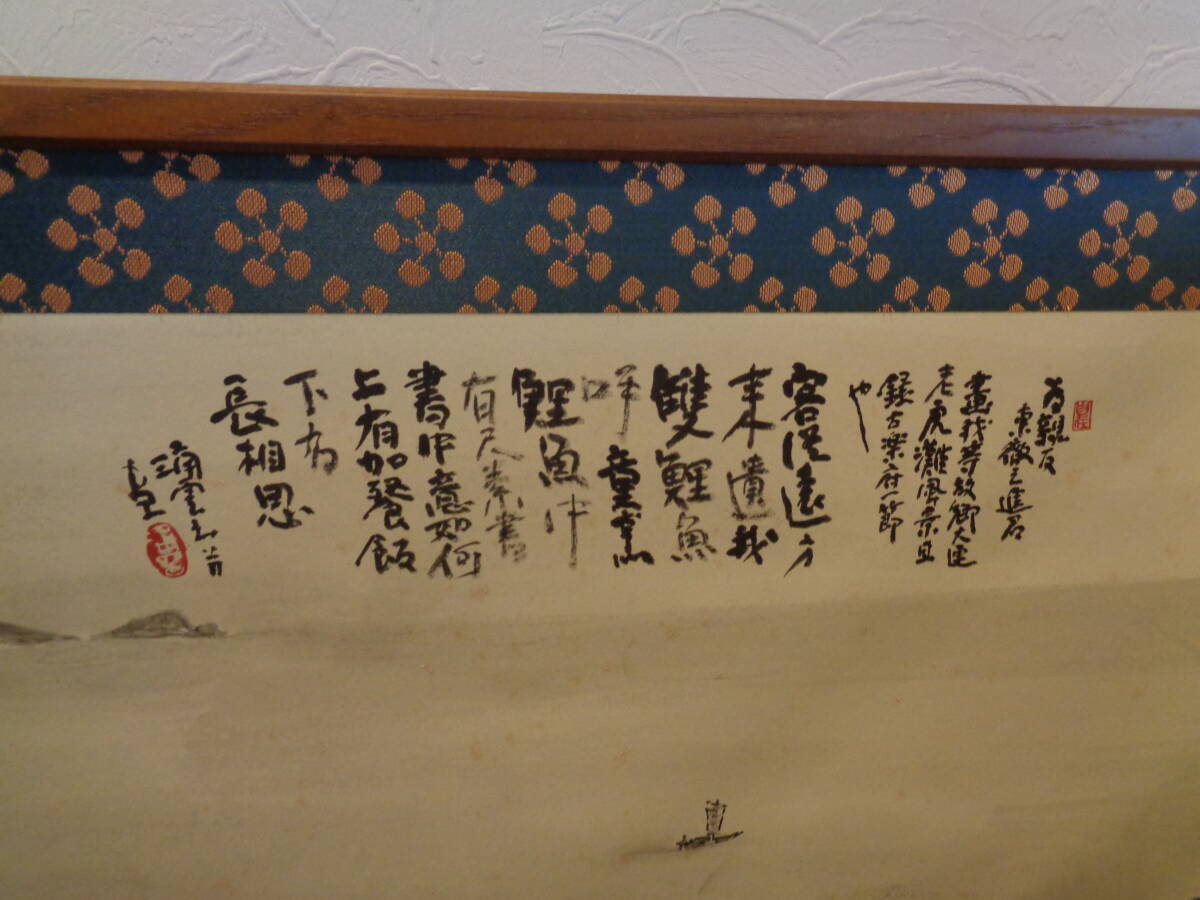 為親友
東徹之進君
画我等故郷大連
老虎灘風景且
録古楽府一節
也
客従遠方
来遺我
雙鯉魚
呼童烹
鯉魚中
有尺素書
書中意如何
上有加餐飯
下有
長相思